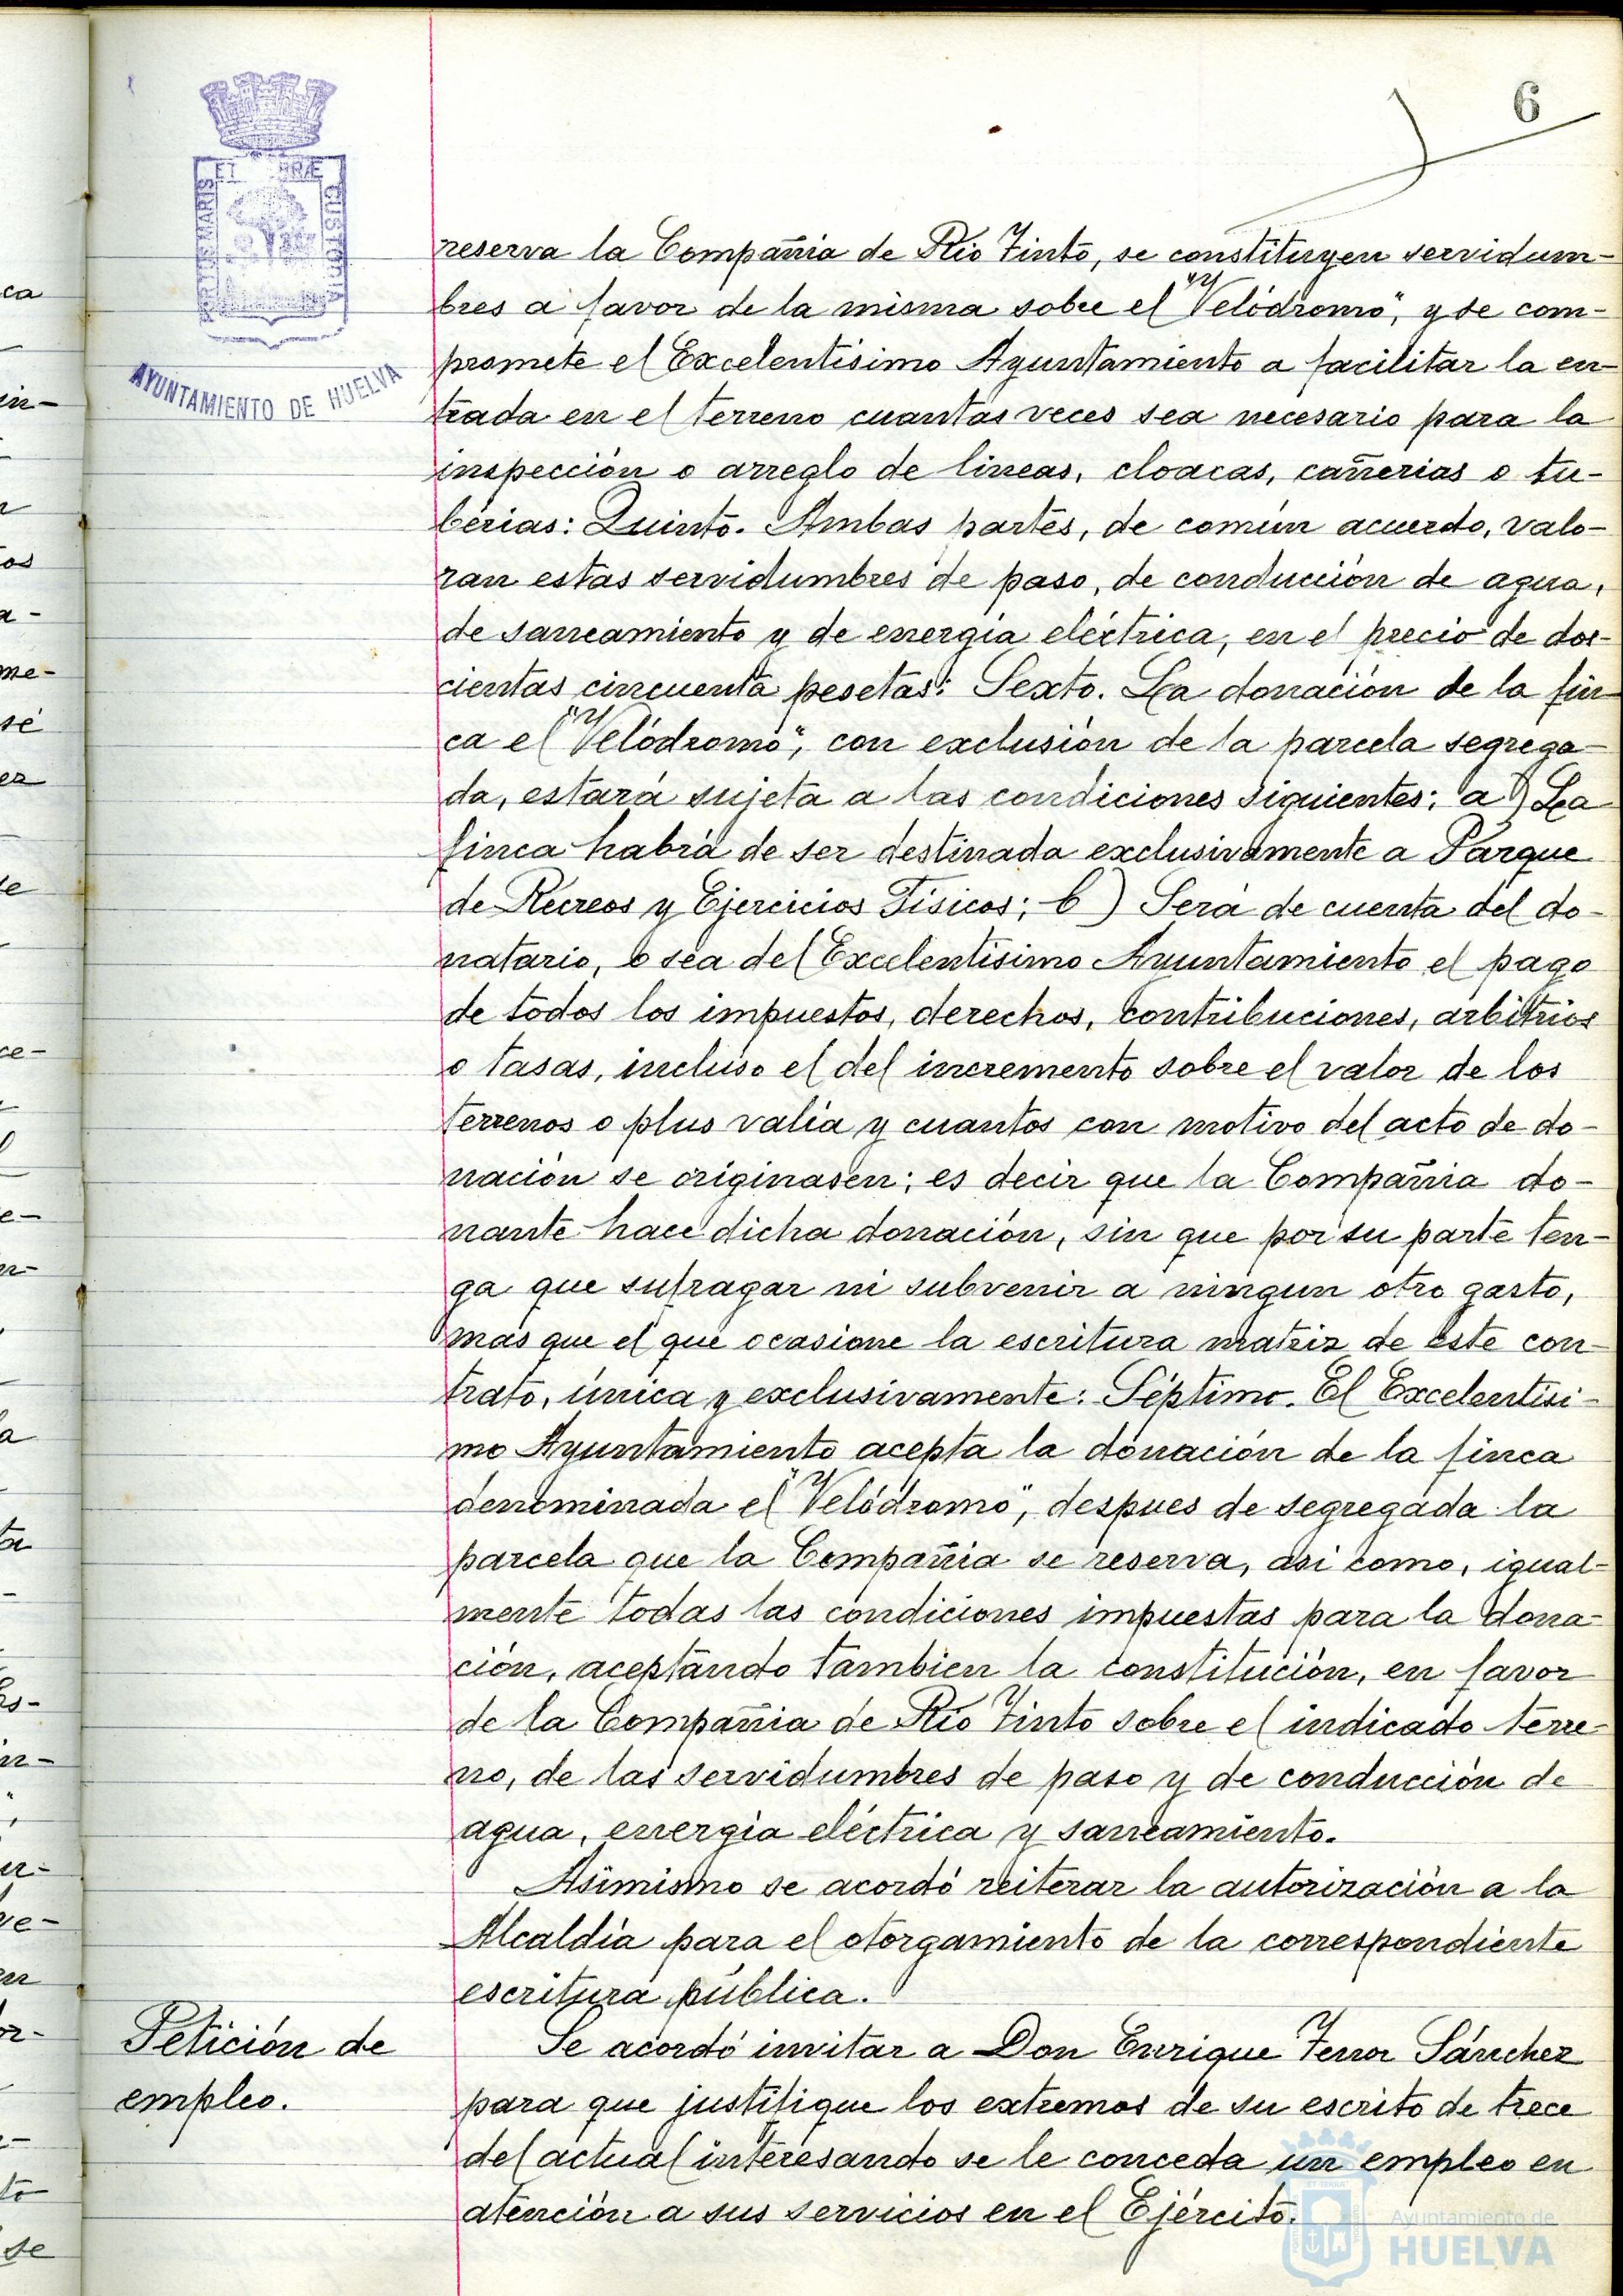 6
ET TERRÆ
PORTUS MARIS
CUSTODIA
AYUNTAMIENTO DE HUELVA
reserva la Compañia de Rio Tinto, se constituyen servidum-
bres a favor de la misma sobre el "Velódromo", y se com-
promete el Excelentísimo Ayuntamiento a facilitar la en-
trada en el terreno cuantas veces sea necesario para la
inspección o arreglo de lineas, cloacas, cañerias o tu-
berias: Quinto. Ambas partes, de común acuerdo, valo-
ran estas servidumbres de paso, de conducción de agua,
de saneamiento y de energía eléctrica, en el precio de dos-
cientas cincuenta pesetas: Sexto. La donación de la fin-
ca el "Velódromo", con exclusión de la parcela segrega-
da, estará sujeta a las condiciones siguientes: a) La
finca habrá de ser destinada exclusivamente a Parque
de Recreos y Ejercicios Físicos; b) Será de cuenta del do-
natario, o sea del Excelentísimo Ayuntamiento el pago
de todos los impuestos, derechos, contribuciones, arbitrios
o tasas, incluso el del incremento sobre el valor de los
terrenos o plus valía y cuantos con motivo del acto de do-
nación se originasen; es decir que la Compañia do-
nante hace dicha donación, sin que por su parte ten-
ga que sufragar ni subvenir a ningun otro gasto,
más que el que ocasione la escritura matriz de éste con-
trato, única y exclusivamente: Séptimo. El Excelentísi-
mo Ayuntamiento acepta la donación de la finca
denominada el "Velódromo", despues de segregada la
parcela que la Compañia se reserva, asi como, igual-
mente todas las condiciones impuestas para la dona-
ción, aceptando tambien la constitución, en favor
de la Compañia de Rio Tinto sobre el indicado terre-
no, de las servidumbres de paso y de conducción de
agua, energía eléctrica y saneamiento.
Asimismo se acordó reiterar la autorización a la
Alcaldía para el otorgamiento de la correspondiente
escritura pública.
Petición de
empleo.
Se acordó invitar a Don Enrique Ferror Sánchez
para que justifique los extremos de su escrito de trece
del actual interesando se le conceda un empleo en
atención a sus servicios en el Ejército.
Ayuntamiento de
HUELVA